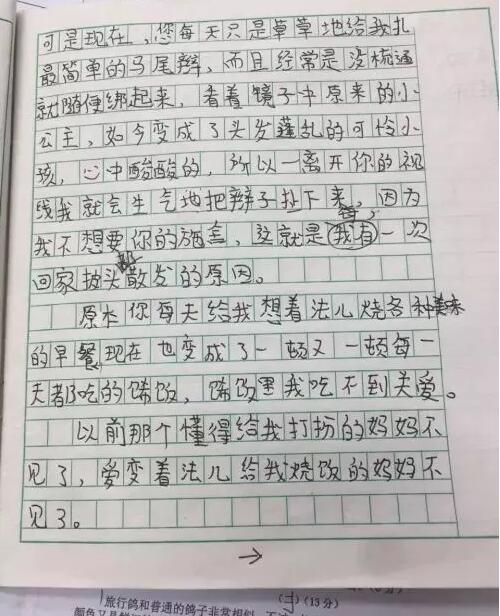 可是现在，您每天只是草草地给我扎
最简单的马尾辫，而且经常是没梳通
就随便绑起来，看着镜子中原来的小
公主，如今变成了头发蓬乱的可怜小
孩，心中酸酸的，所以一离开你的视
线我就会生气地把辫子扯下来，因为
我不想要你的施舍，这就是我每一次
回家披头散发的原因。
原本你每天给我想着法儿烧各种美味
的早餐现在也变成了一顿又一顿每一
天都吃的馊饭，馊饭里我吃不到关爱。
以前那个懂得给我打扮的妈妈不
见了，爱变着法儿给我烧饭的妈妈不
见了。
→
旅行鸽和普通的鸽子非常相似
(13分)